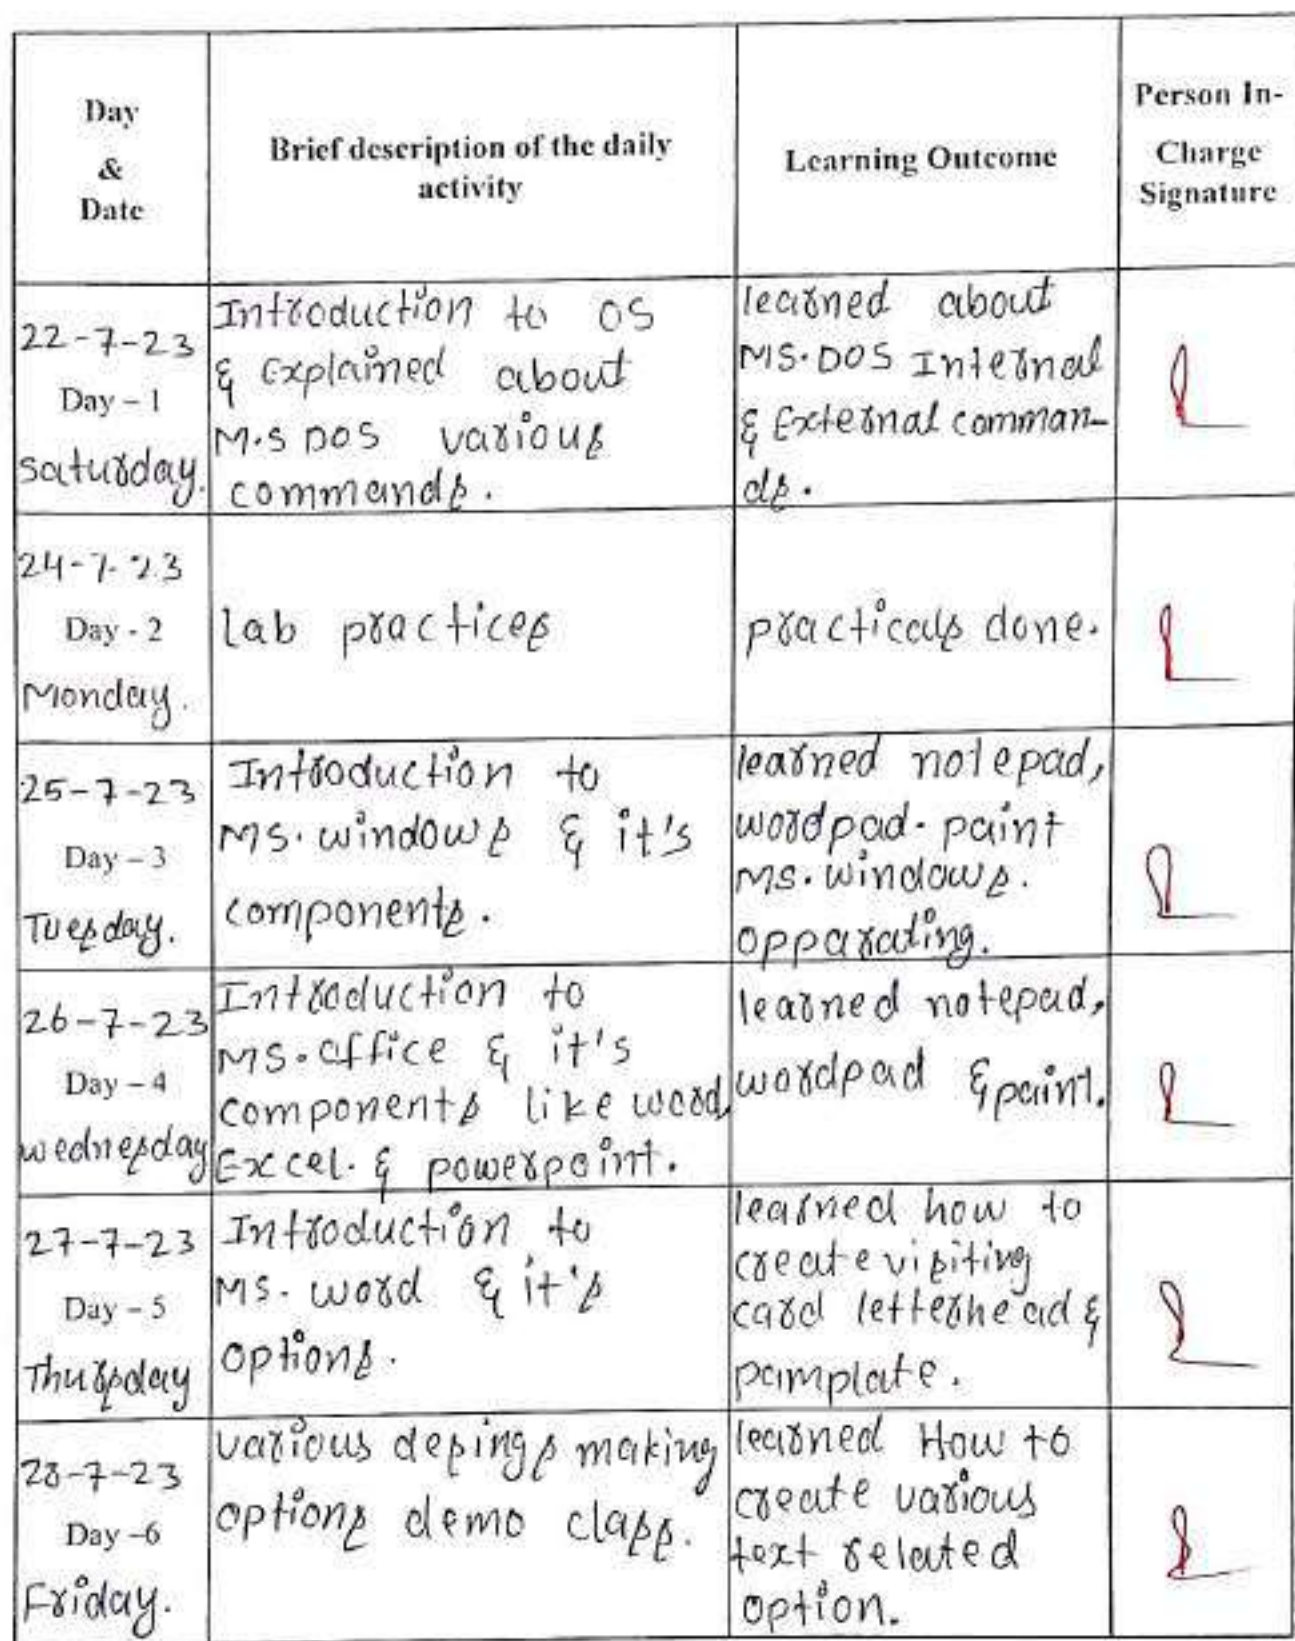 Day
&
Date
Brief description of the daily
activity
Learning Outcome
Person In-
Charge
Signature
22-7-23
Day – 1
saturday.
Introduction to OS
& Explained about
M.S DOS various
commands.
learned about
MS.DOS Internal
& External comman-
ds.
24-7-23
Day - 2
Monday.
lab practices
practicals done.
25-7-23
Day – 3
Tuesday.
Introduction to
MS. windows & it's
components.
learned notepad,
wordpad. paint
MS. windows.
opparating.
26-7-23
Day – 4
wednesday
Introduction to
MS. office & it's
components like word,
Excel. & powerpoint.
learned notepad,
wordpad & paint.
27-7-23
Day – 5
Thursday
Introduction to
MS. word & it's
options.
learned how to
create visiting
card letterhead &
pamplate.
28-7-23
Day –6
Friday.
various desings making
options demo class.
learned How to
create various
text related
option.